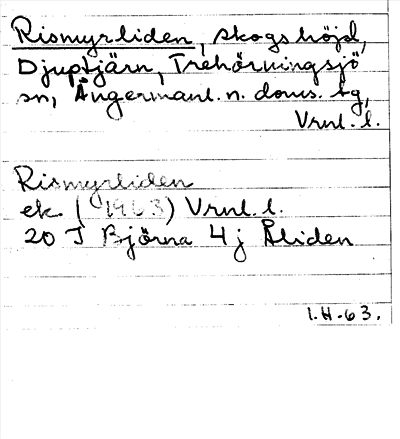 Rismyrliden, skogshöjd,
Djuptjärn, Trehörningsjö
sn, Ångermanl. n. doms. tg,
Vrnl. l.
Rismyrliden
ek. (1963) Vrnl. l.
20 J Björna 4 j Åliden
I.H.-63.